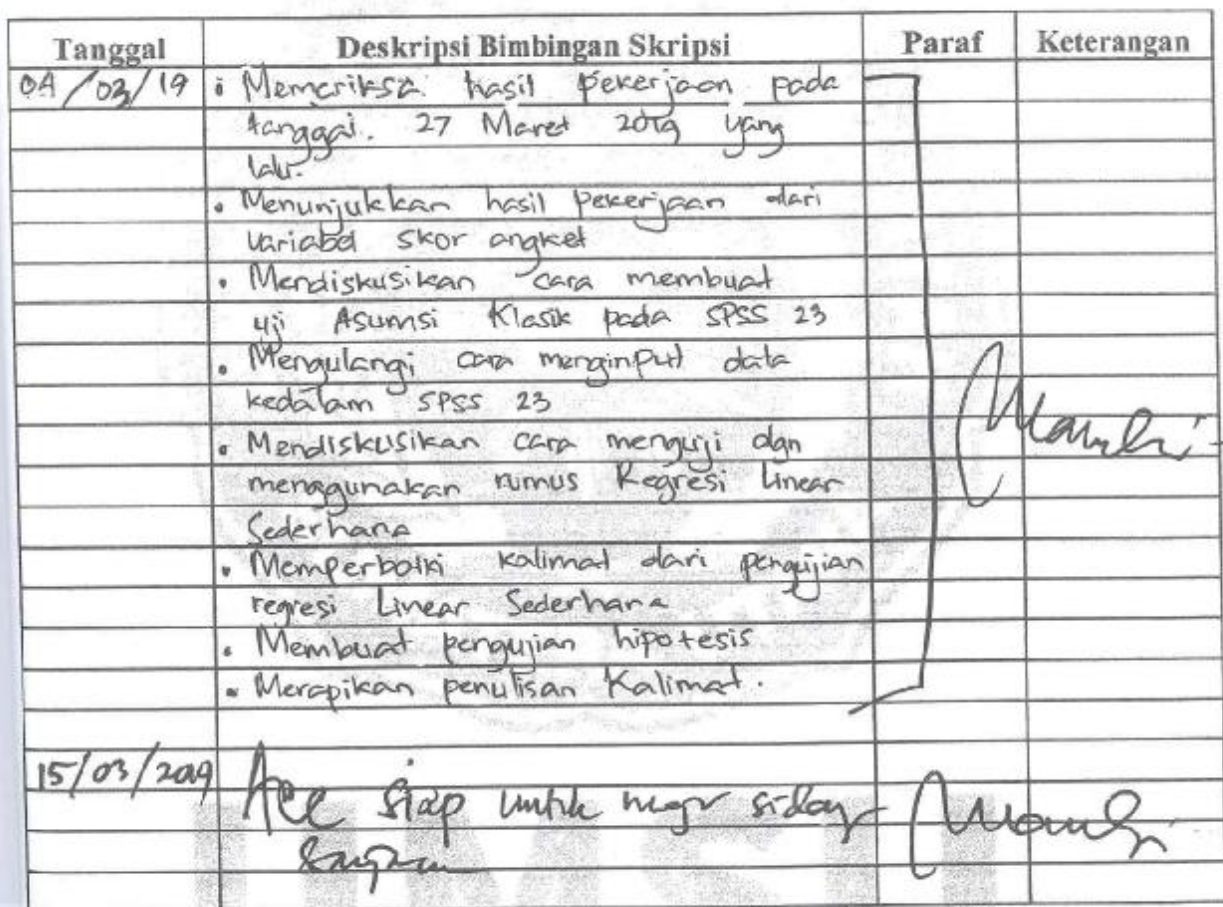 Tanggal Deskripsi Bimbingan Skripsi Paraf Keterangan
04/03/19 • Memeriksa hasil pekerjaan pada
tanggal. 27 Maret 2019 yang
lalu.
• Menunjukkan hasil pekerjaan dari
variabel skor angket
• Mendiskusikan cara membuat
uji Asumsi Klasik pada SPSS 23
• Mengulangi cara menginput data
kedalam SPSS 23
• Mendiskusikan cara menguji dgn
menggunakan rumus Regresi Linear
Sederhana
• Memperbaiki kalimat dari pengujian
regresi Linear Sederhana
• Membuat pengujian hipotesis
• Merapikan penulisan Kalimat.
15/03/2019 Acc siap untuk sidang